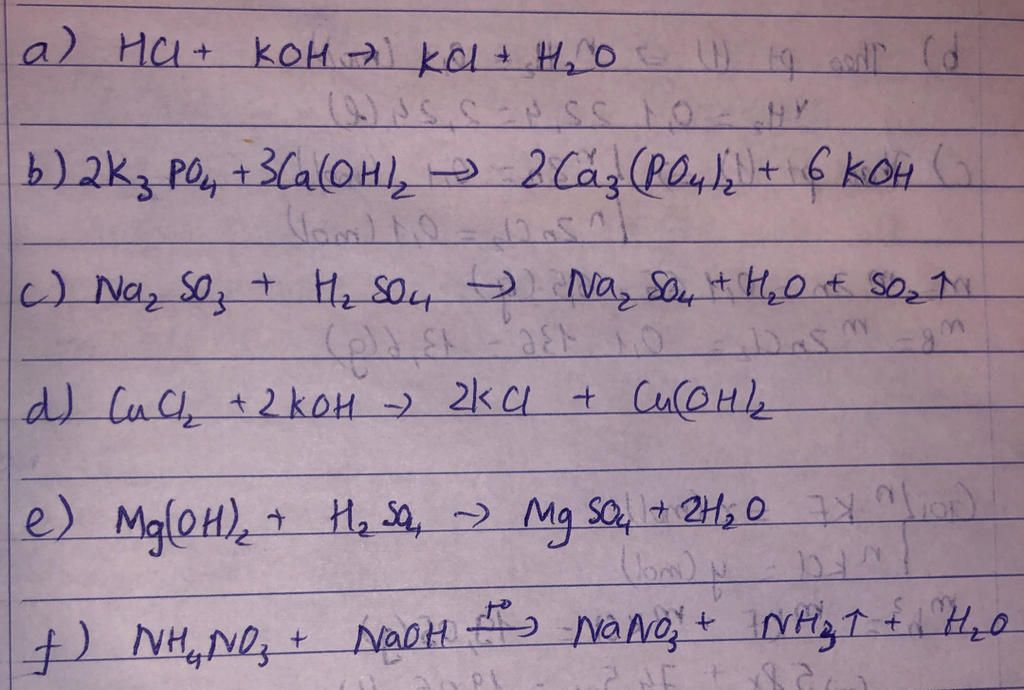 a) HCl + KOH → KCl + H₂O
b) 2K₃PO₄ + 3Ca(OH)₂ → 2Ca₃(PO₄)₂ + 6KOH
c) Na₂SO₃ + H₂SO₄ → Na₂SO₄ + H₂O + SO₂↑
d) CuCl₂ + 2KOH → 2KCl + Cu(OH)₂
e) Mg(OH)₂ + H₂SO₄ → MgSO₄ + 2H₂O
f) NH₄NO₃ + NaOH –t°→ NaNO₃ + NH₃↑ + H₂O